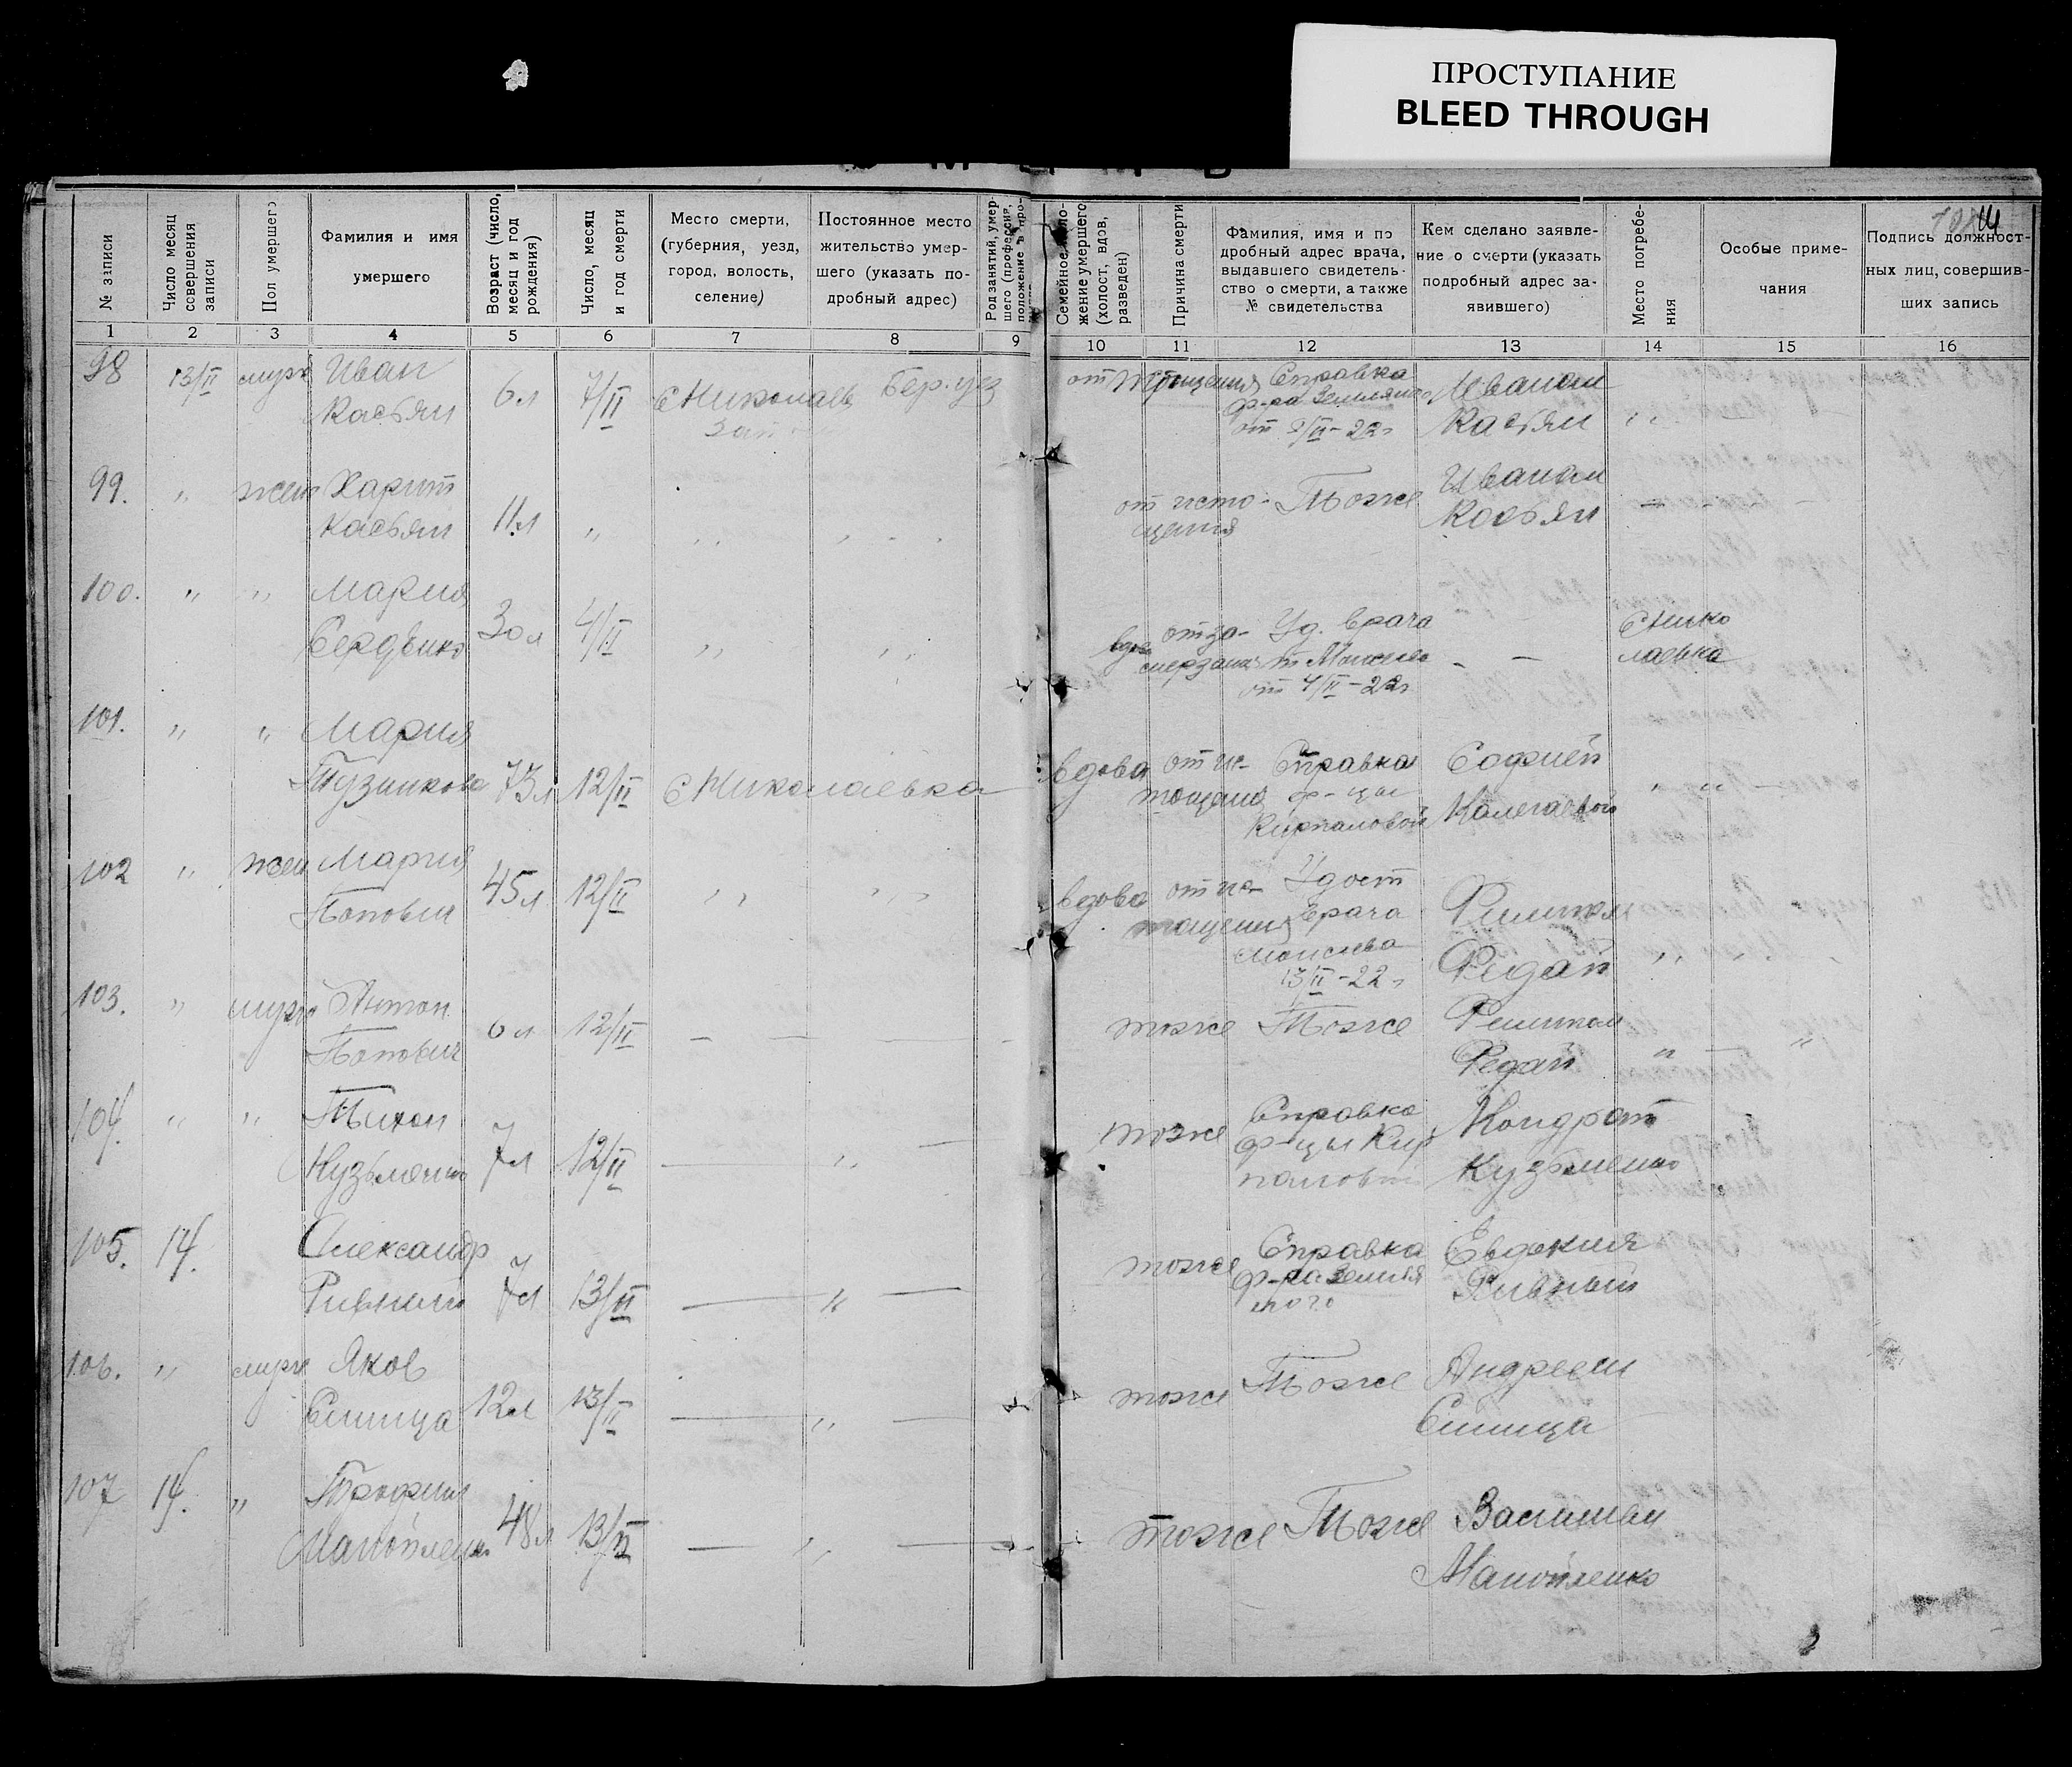 ПРОСТУПАНИЕ
BLEED THROUGH
№ записи
Число месяц совершения записи
Пол умершего
Фамилия и имя
умершего
Возраст (число, месяц и год рождения)
Число, месяц и год смерти
Место смерти,
(губерния, уезд,
город, волость,
селение)
Постоянное место
жительство умер-
шего (указать по-
дробный адрес)
Род занятий, умер-
шего (профессия,
положение в про-
Семейное поло-
жение умершего
(холост, вдов,
разведен)
Причина смерти
Фамилия, имя и по
дробный адрес врача,
выдавшего свидетель-
ство о смерти, а также
№ свидетельства
Кем сделано заявле-
ние о смерти (указать
подробный адрес за-
явившего)
Место погребе-
ния
Особые приме-
чания
Подпись должност-
ных лиц, совершив-
ших запись
1 2 3 4 5 6 7 8 9 10 11 12 13 14 15 16
98 13/II муж Иван
Касьян 6л 7/II с Николаев Бер. уез
от Справка
ф-ра
от 8/II-22г
Иваном
Касьян
99. " жен Харит
Касьян 11л "
от исто-
щения
Тоже
Иваном
Касьян
100. " " Мария
30л 4/II
вдова от за-
мерзания
Уд. врача
от 4/II-22г
с Нико
лаевка
101. " " Мария
Тузликова 73л 12/II с Николаевка
вдова от ис-
тощения
Справка
ф-цы
Софией
102 " жен Мария
Попович 45л 12/II
вдова от ис-
тощения
Удост
врача
Моисеева
13/II-22г
Редай
103. " муж Антон
Попович 6л 12/II
тоже Тоже
Редай
104. " " Тихон
Кузьменко 7л 12/II "
тоже Справка
ф-цы Кир
Кондрат
Кузьменко
105. 14. Александр
Ривный 7л 13/II "
тоже Справка
ф-ра
Евдокия
Ривный
106. " муж Яков
Синица 12л 13/II "
тоже Тоже Андреем
Синица
107 14. " Трофим
Манойленко 48л 13/II "
тоже Тоже Василием
Манойленко